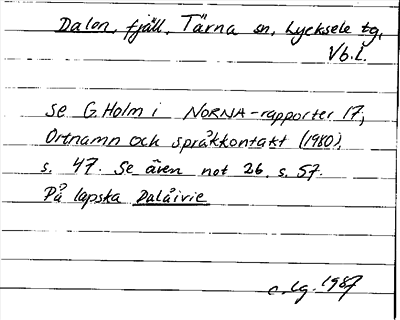 Dalon, fjäll, Tärna sn, Lycksele tg,
Vb.l.
Se G. Holm i NORNA-rapporter 17,
Ortnamn och språkkontakt (1980),
s. 47. Se även not 26, s. 57.
På lapska Dalåivie
c.lg. 1987